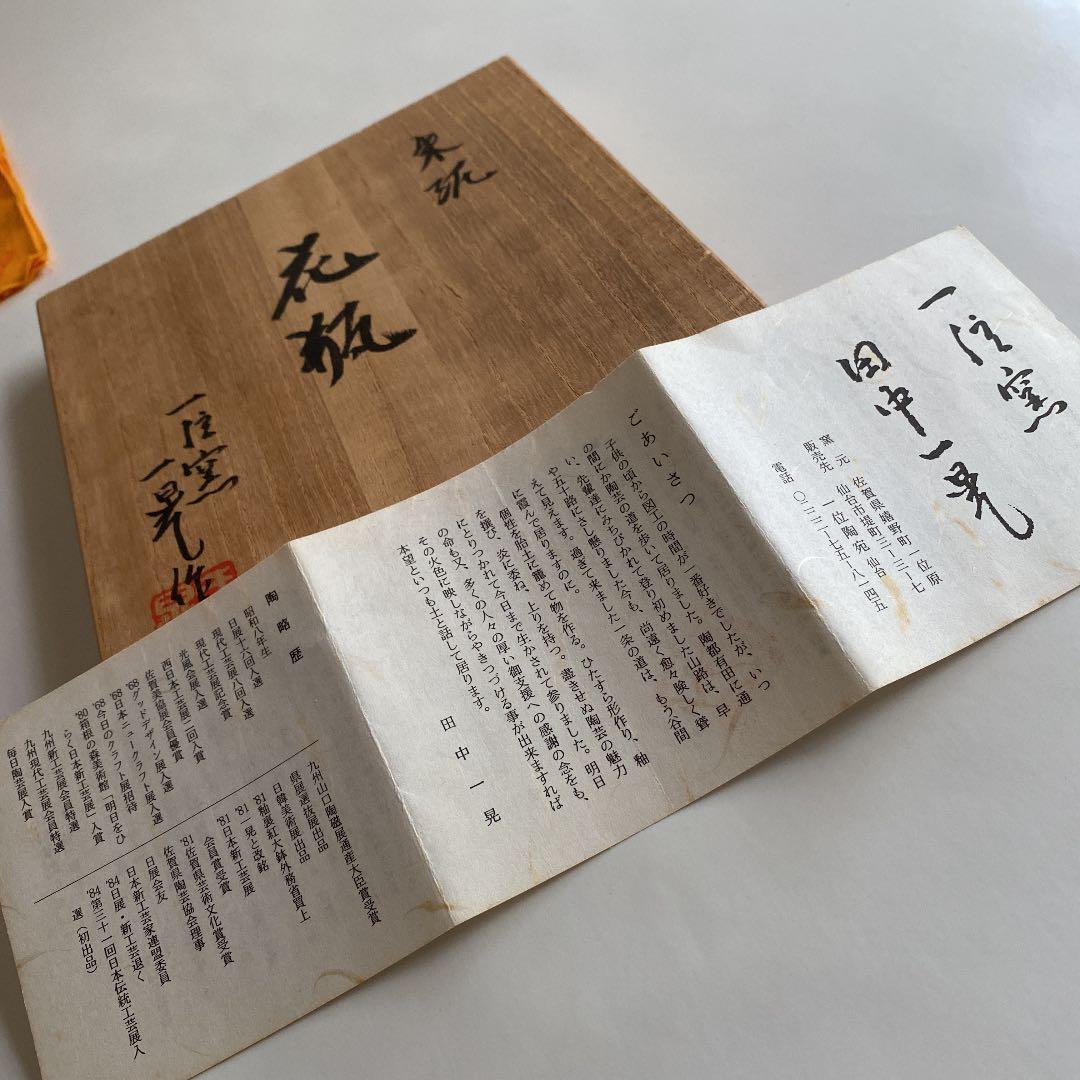 花瓶
一位窯
一晃作
一位窯
田中一晃
窯元 佐賀県嬉野町一位原
販売先 一位陶苑 仙台
仙台市堤町三ー一三ー七
電話 〇二二二ー七五ー八一四五
ごあいさつ
子供の頃から図工の時間が一番好きでしたが、いつ
の間にか陶芸の道を歩いて居りました。陶都有田に通
い、先輩達にみちびかれて登り初めました山路は、早
や五十路にさし懸りました今も、尚遠く愈々険しく聳
えて見えます。過ぎて来ました一条の道は、もう谷間
に霞んで居りますのに。
個性を陶土に籠めて物を作る。ひたすら形作り、釉
を撰び、炎に委ね、上りを待つ。盡きせぬ陶芸の魅力
にとりつかれて今日まで生かされて参りました。明日
の命も又、多くの人々の厚い御支援への感謝の念をも、
その火色に映しながらやきつづける事が出来ますれば
本望といつも土と話して居ります。
田中一晃
陶略歴
昭和八年生
日展十六回入選
現代工芸展八回入選
現代工芸展記念賞
光風会展入選
西日本工芸展二回入賞
佐賀美協展会員優賞
'68グッドデザイン展入選
'68日本ニュークラフト展入選
'68今日のクラフト展招待
'80箱根の森美術館「明日をひ
らく日本新工芸展」入賞
九州新工芸展会員特選
九州現代工芸展会員特選
毎日陶芸展入賞
九州山口陶磁展通産大臣賞受賞
県展選抜展出品
日韓美術展出品
'81釉墨紅大鉢外務省買上
'81一晃と改銘
'81日本新工芸展
会員賞受賞
'81佐賀県芸術文化賞受賞
佐賀県陶芸協会理事
日展会友
日本新工芸家連盟委員
'84日展・新工芸退く
'84第三十一回日本伝統工芸展入
選(初出品)